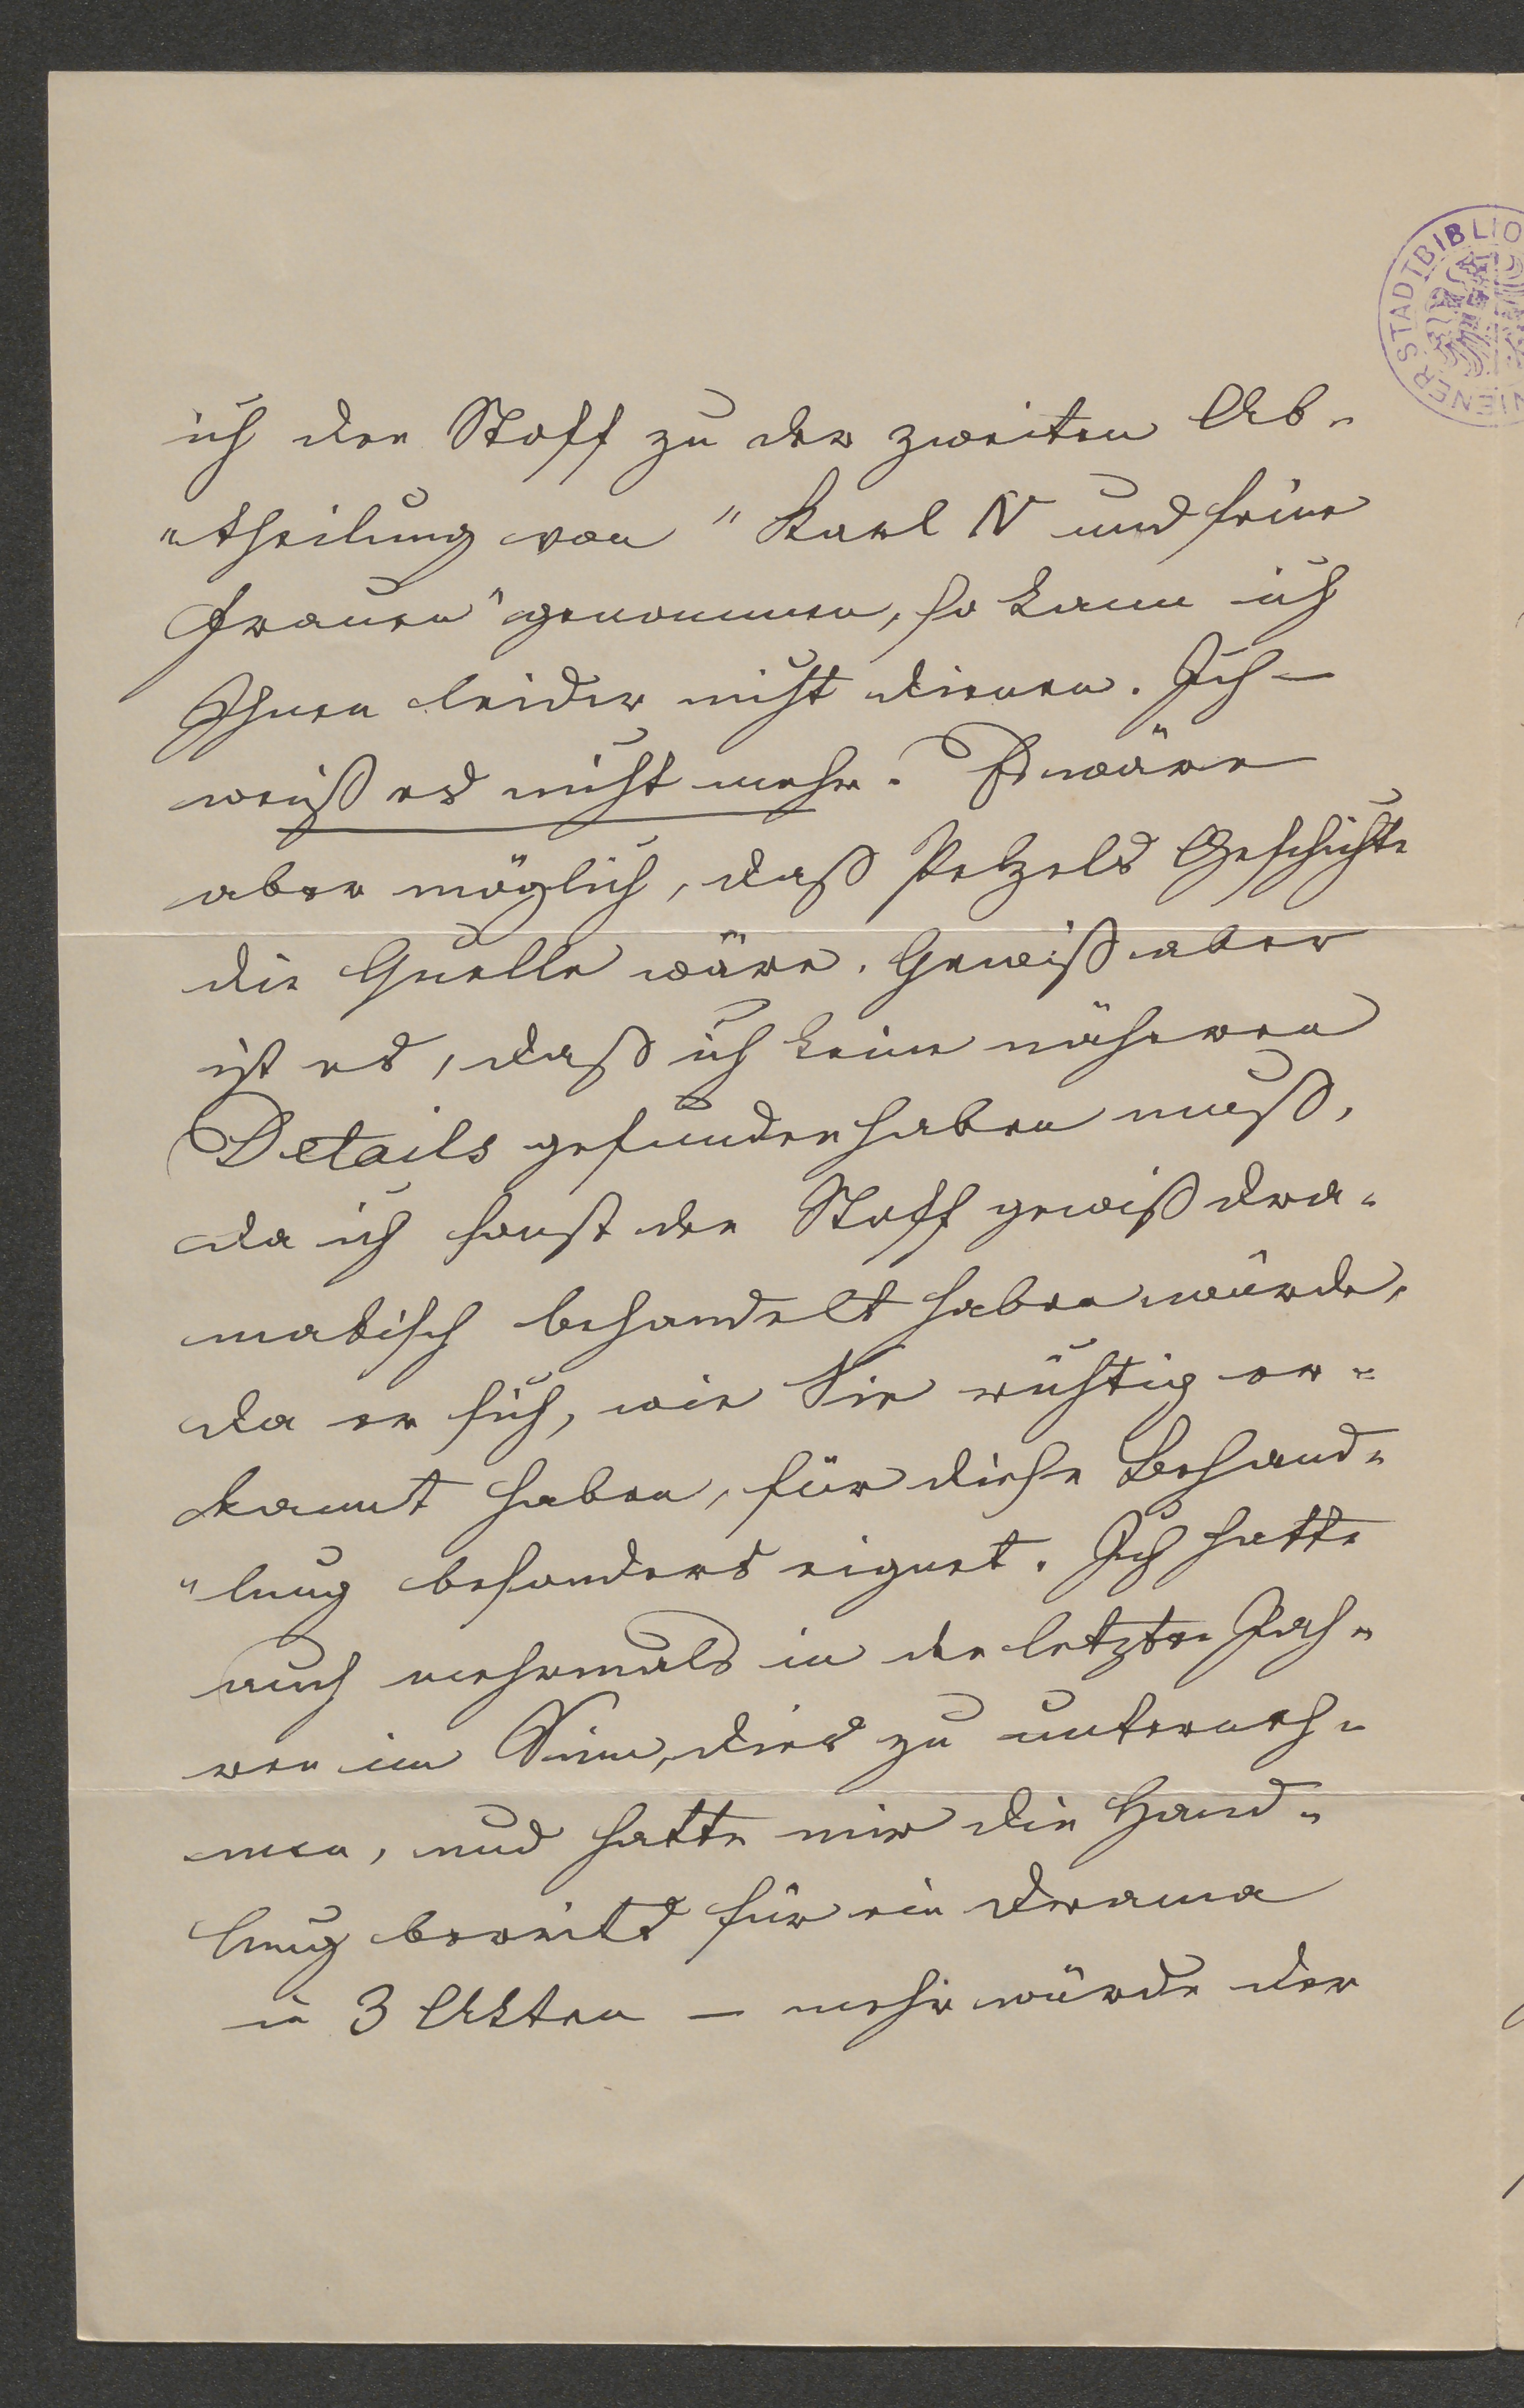 WIENER STADTBIBLIO
ich den Stoff zu der zweiten Ab-
-theilung von "Karl IV und seine
Frauen" genommen, so kann ich
Ihnen leider nicht dienen. Ich
weiß es nicht mehr. Es wäre
aber möglich, daß Pelzels Geschichte
die Quelle wäre. Gewiß aber
ist es, daß ich keine näheren
Details gefunden haben muß,
da ich sonst den Stoff gewiß dra-
matisch behandelt haben würde,
da er sich, wie Sie richtig er-
kannt haben, für diese Behand-
-lung besonders eignet. Ich hatte
auch mehrmals in den letzten Jah-
ren im Sinn, dies zu unterneh-
men, und hatte mir die Hand-
lung bereits für ein Drama
in 3 Akten – mehr würde der